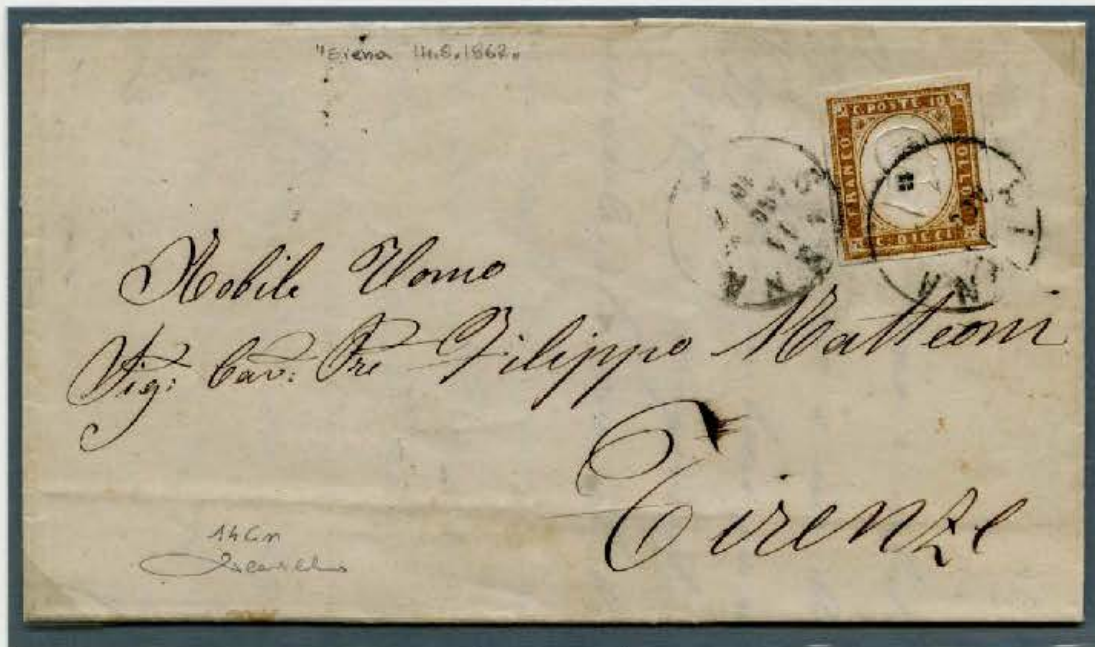 "Siena 14.8.1862"
C. POSTE 10
FRANCO
BOLLO
C. DIECI
SIENA
Nobile Uomo
Sig: Cav: Pre Filippo Matteoni
Firenze
14Cn